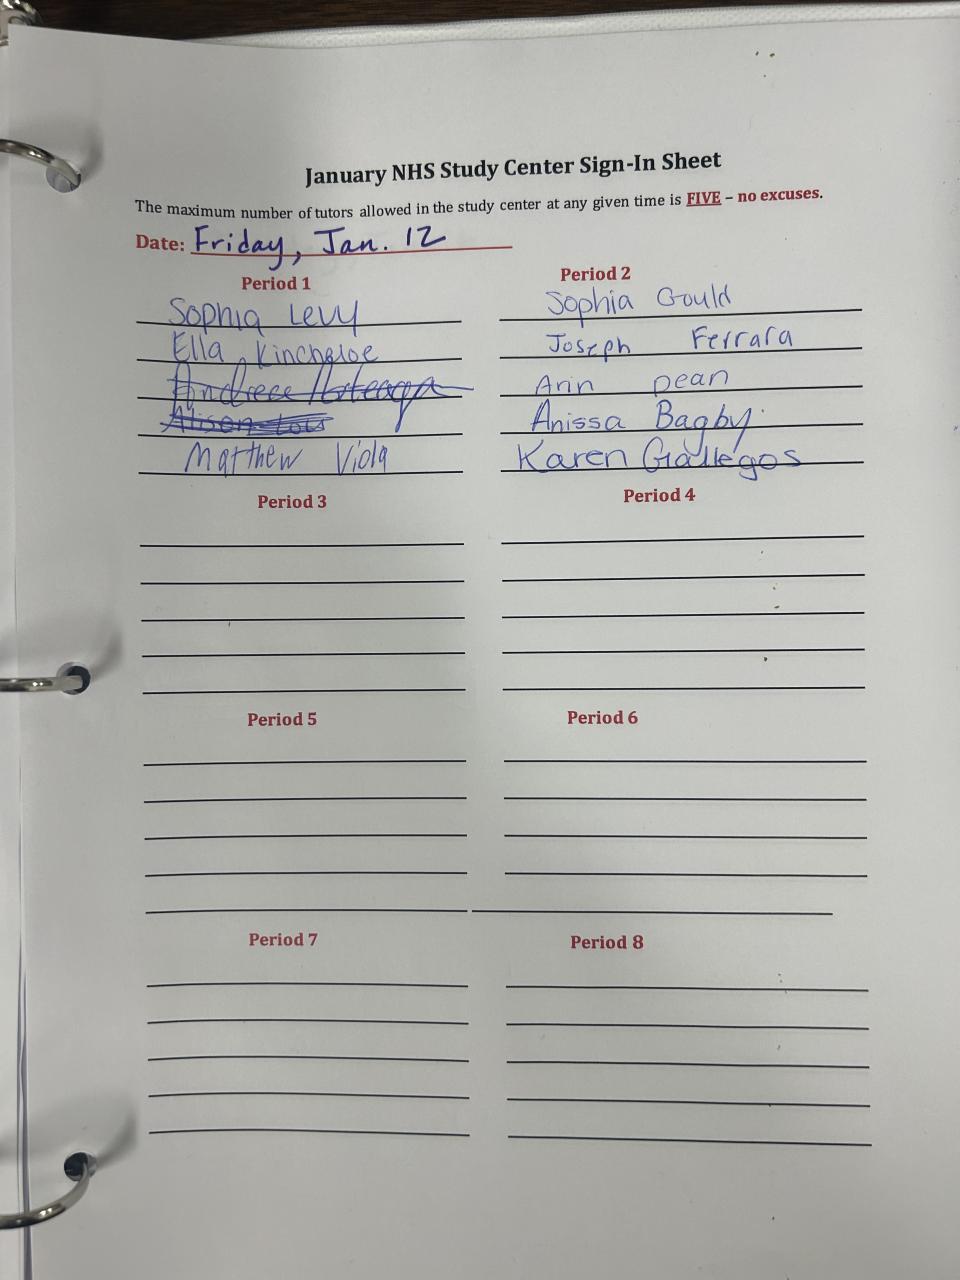 January NHS Study Center Sign-In Sheet
The maximum number of tutors allowed in the study center at any given time is FIVE – no excuses.
Date: Friday, Jan. 12
Period 1
Sophia Levy
Ella Kincheloe
Matthew Viola
Period 2
Sophia Gould
Joseph Ferrara
Arin pean
Anissa Bagby
Karen Gallegos
Period 3
Period 4
Period 5
Period 6
Period 7
Period 8